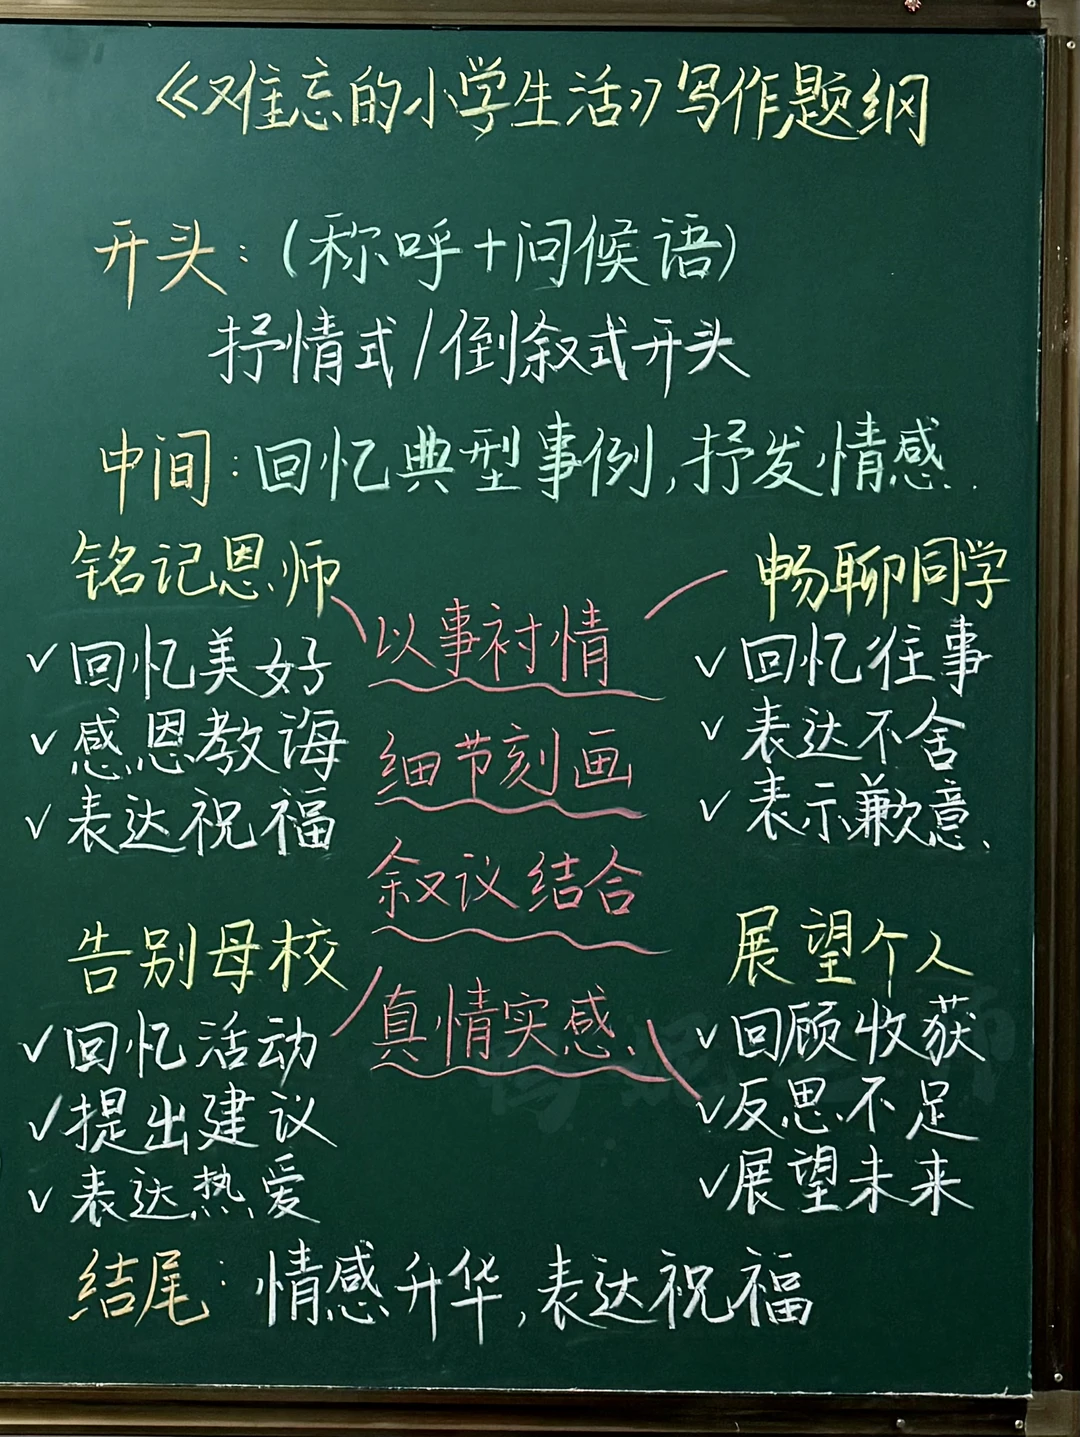 《难忘的小学生活》写作题纲
开头：（称呼+问候语）
抒情式/倒叙式开头
中间：回忆典型事例，抒发情感.
铭记恩师
✓回忆美好
✓感恩教诲
✓表达祝福
以事衬情
细节刻画
叙议结合
真情实感.
畅聊同学
✓回忆往事
✓表达不舍
✓表示歉意.
告别母校
✓回忆活动
✓提出建议
✓表达热爱
展望个人
✓回顾收获
✓反思不足
✓展望未来
结尾：情感升华，表达祝福